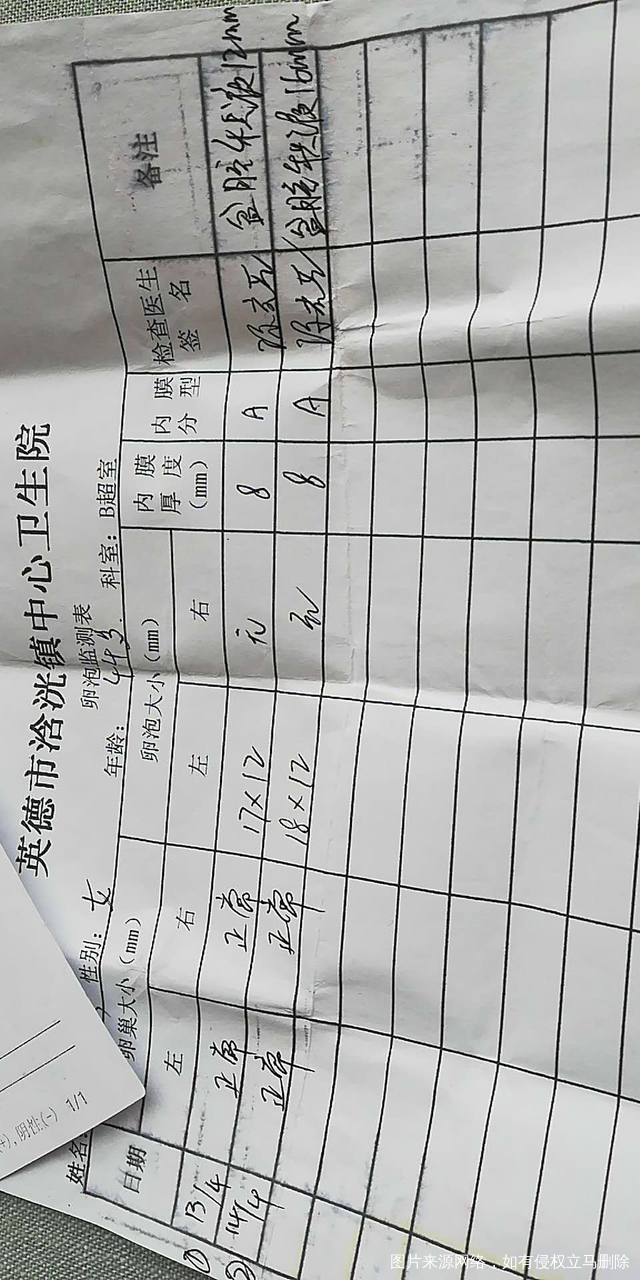 英德市浛洸镇中心卫生院
卵泡监测表
姓名 性别: 女 年龄: 科室: B超室
日期 卵巢大小(mm) 卵泡大小(mm) 内膜厚度(mm) 内膜分型 检查医生签名 备注
左 右 左 右
① 13/4 正常 正常 17×12 无 8 A 盆腔积液12mm
② 14/4 正常 正常 18×12 无 8 A 盆腔积液16mm
阴性(-) 1/1
图片来源网络，如有侵权立马删除